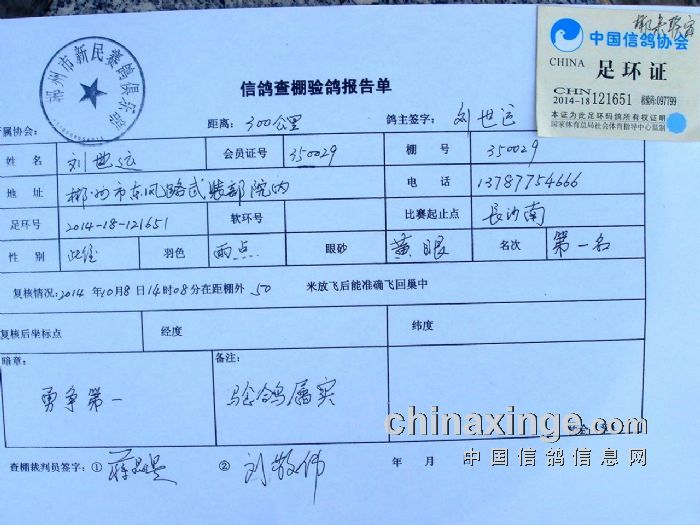 郴州市新民赛鸽俱乐部
中国信鸽协会
CHINA 足环证
CHN
2014-18 121651 核编码:097799
本证为此足环码鸽所有权证明
国家体育总局社会体育指导中心监制
信鸽查棚验鸽报告单
所属协会: 距离: 300公里 鸽主签字: 刘世运
姓 名 刘世运 会员证号 350029 棚 号 350029
地 址 郴州市东风路武装部院内 电 话 13787754666
足环号 2014-18-121651 软环号 比赛起止点 长沙南
性 别 羽色 雨点 眼砂 黄眼 名次 第一名
复核情况:2014年10月8日14时08分在距棚外 50 米放飞后能准确飞回巢中
复核后坐标点 经度 纬度
暗章: 备注:
勇争第一 验鸽属实
chinaxinge.com
中国信鸽信息网
查棚裁判员签字:① ② 刘敬伟 年 月